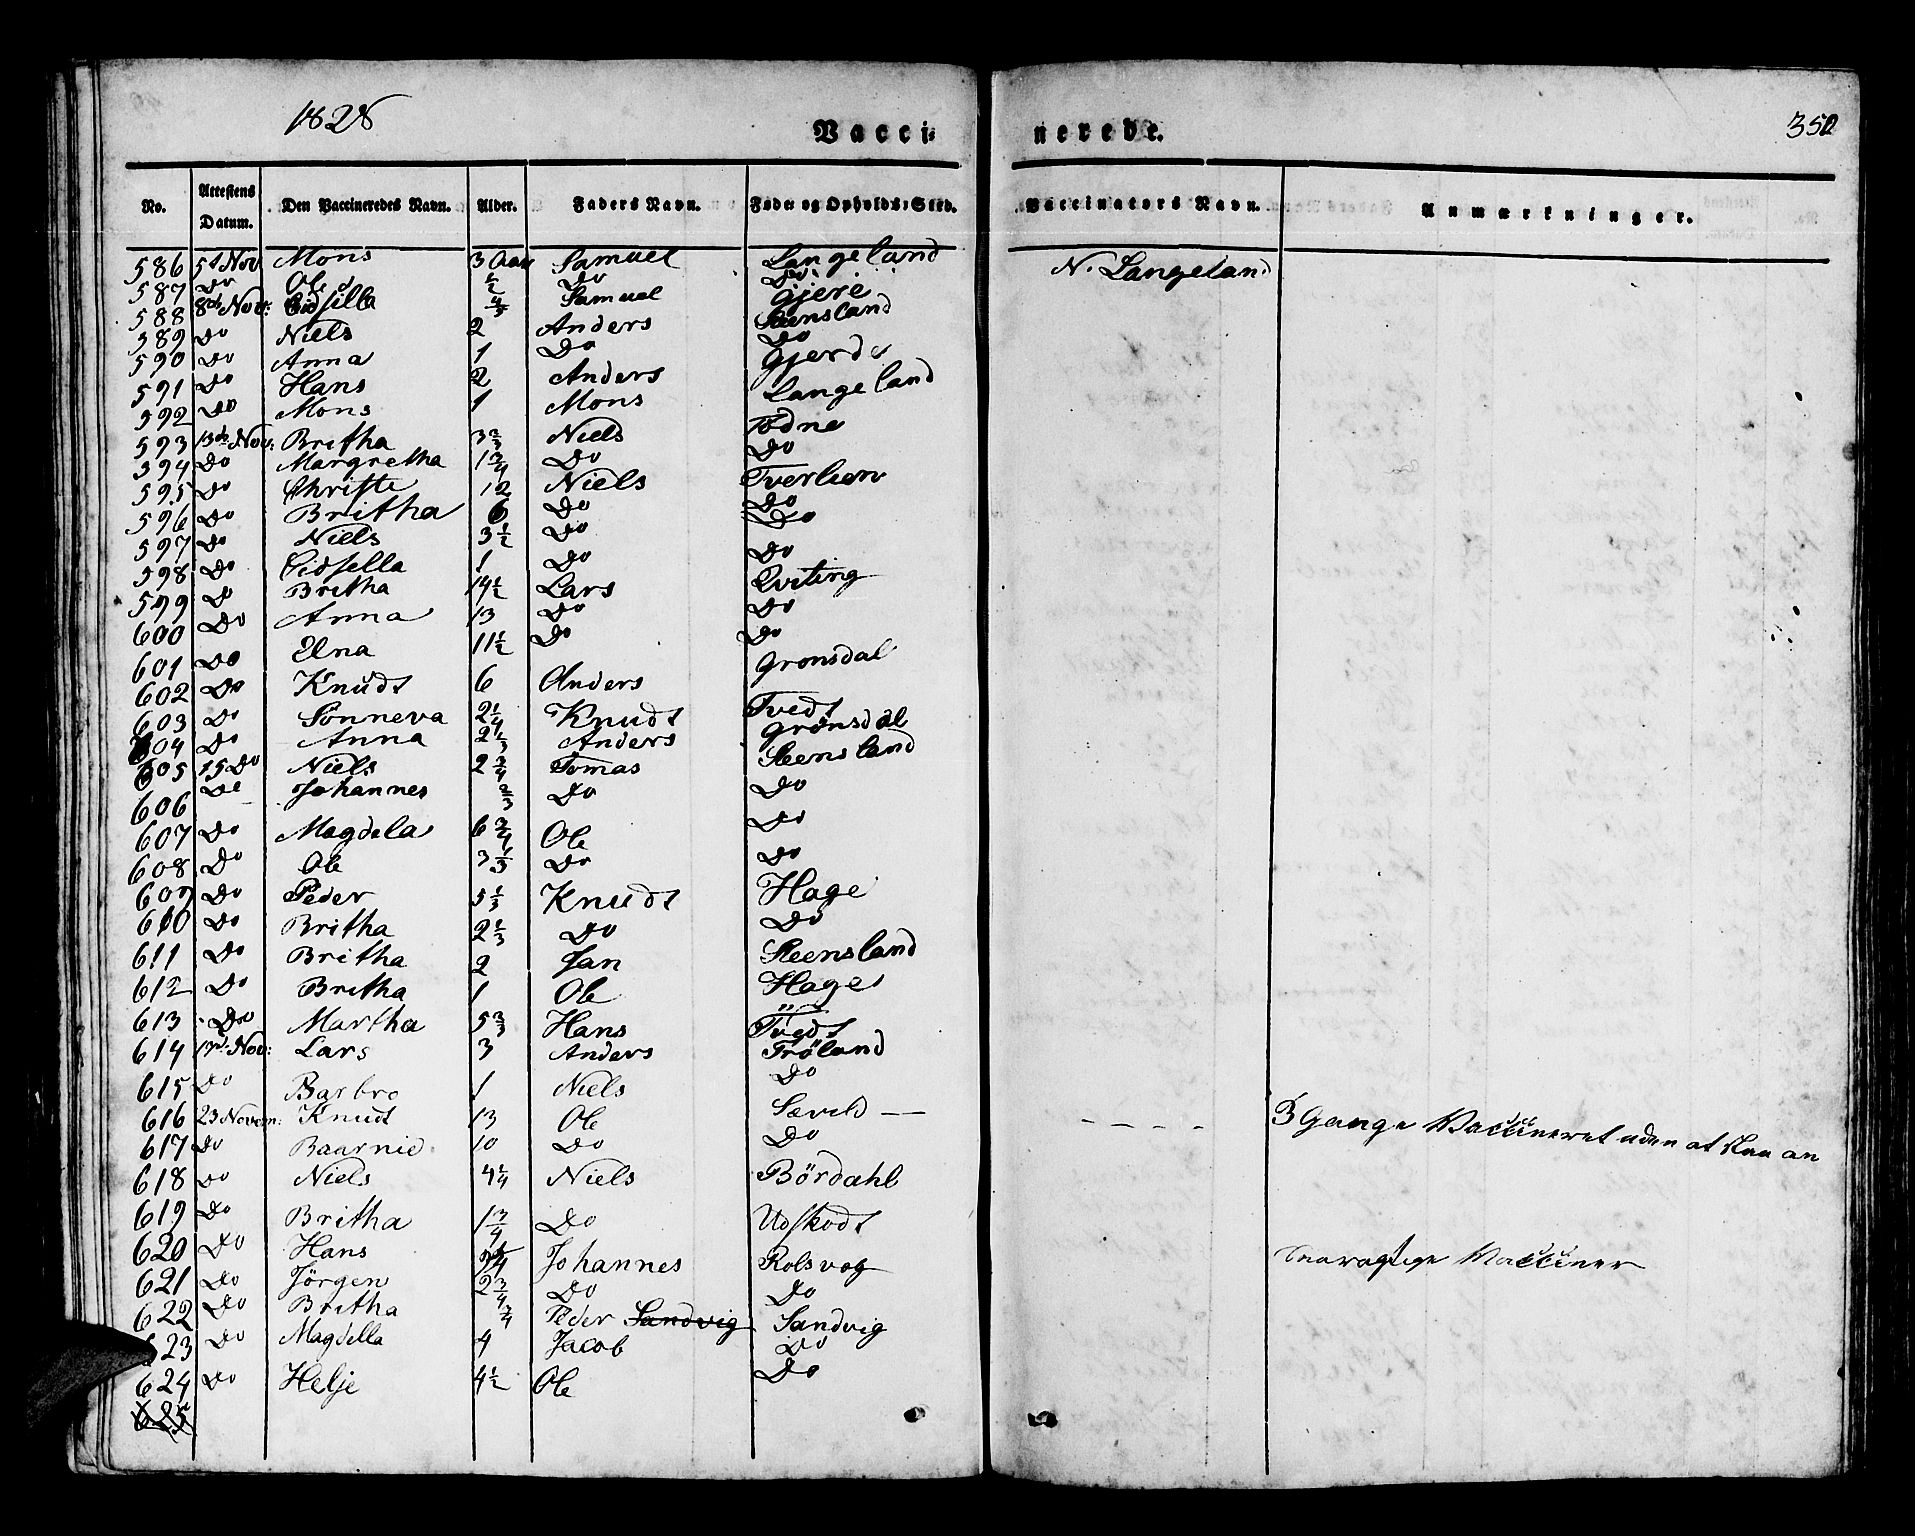 1828 Vacci: nerede. 350
No. Attestens Datum. Den Vaccineredes Navn. Alder. Faders Navn. Føde- og Opholds-Sted. Vaccinators Navn. Anmærkninger.
586 5t Nov Mons 3 Aar Samuel Langeland N. Langeland
587 Do Ole ½ Do Do
588 8de Nov: Cidsella Samuel Gjere
589 Do Niels 2 Anders Steensland
590 Do Anna 1 Do Do
591 Do Hans 2 Anders Gjerde
592 Do Mons 1 Mons Langeland
593 13de Nov: Britha 3⅔ Niels Tødne
594 Do Margretha 1¾ Do Do
595 Do Christe 12 Niels Tverlien
596 Do Britha 6 Do Do
597 Do Niels 3½ Do Do
598 Do Cidsella 1 Do Do
599 Do Britha 14½ Lars Qviting
600 Do Anna 13 Do Do
601 Do Elna 11½ Do Do
602 Do Knudt 6 Anders Gronsdal
603 Do Sönneva 2¼ Knudt Tvedt
604 Do Anna 2⅓ Anders Grønsdal
605 15 Do Niels 2¾ Tomas Steensland
606 Do Johannes ⅔ Do Do
607 Do Magdela 6¾ Ole Do
608 Do Ole 3⅓ Do Do
609 Do Peder 5⅓ Knudt Hage
610 Do Britha 2⅓ Do Do
611 Do Britha 2 Jan Steensland
612 Do Britha 1 Ole Hage
613 Do Martha 5⅔ Hans Tvedt
614 17d Nov: Lars 3 Anders Frøland
615 Do Barbro 1 Niels Do
616 23 Novem: Knudt 13 Ole Sæveld — - - - - - 3 Gange Vaccineret uden at slaa an
617 Do Baarnid 10 Do Do
618 Do Niels 4¼ Niels Børdahl
619 Do Britha 1¾ Do Udskodt
620 Do Hans Johannes Rolsvog Vacciner
621 Do Jörgen 2¾ Do Do
622 Do Britha ¾ Peder Sandvig Sandvig
623 Do Magdella 4 Jacob Do
624 Do Helje 4½ Ole Do
625